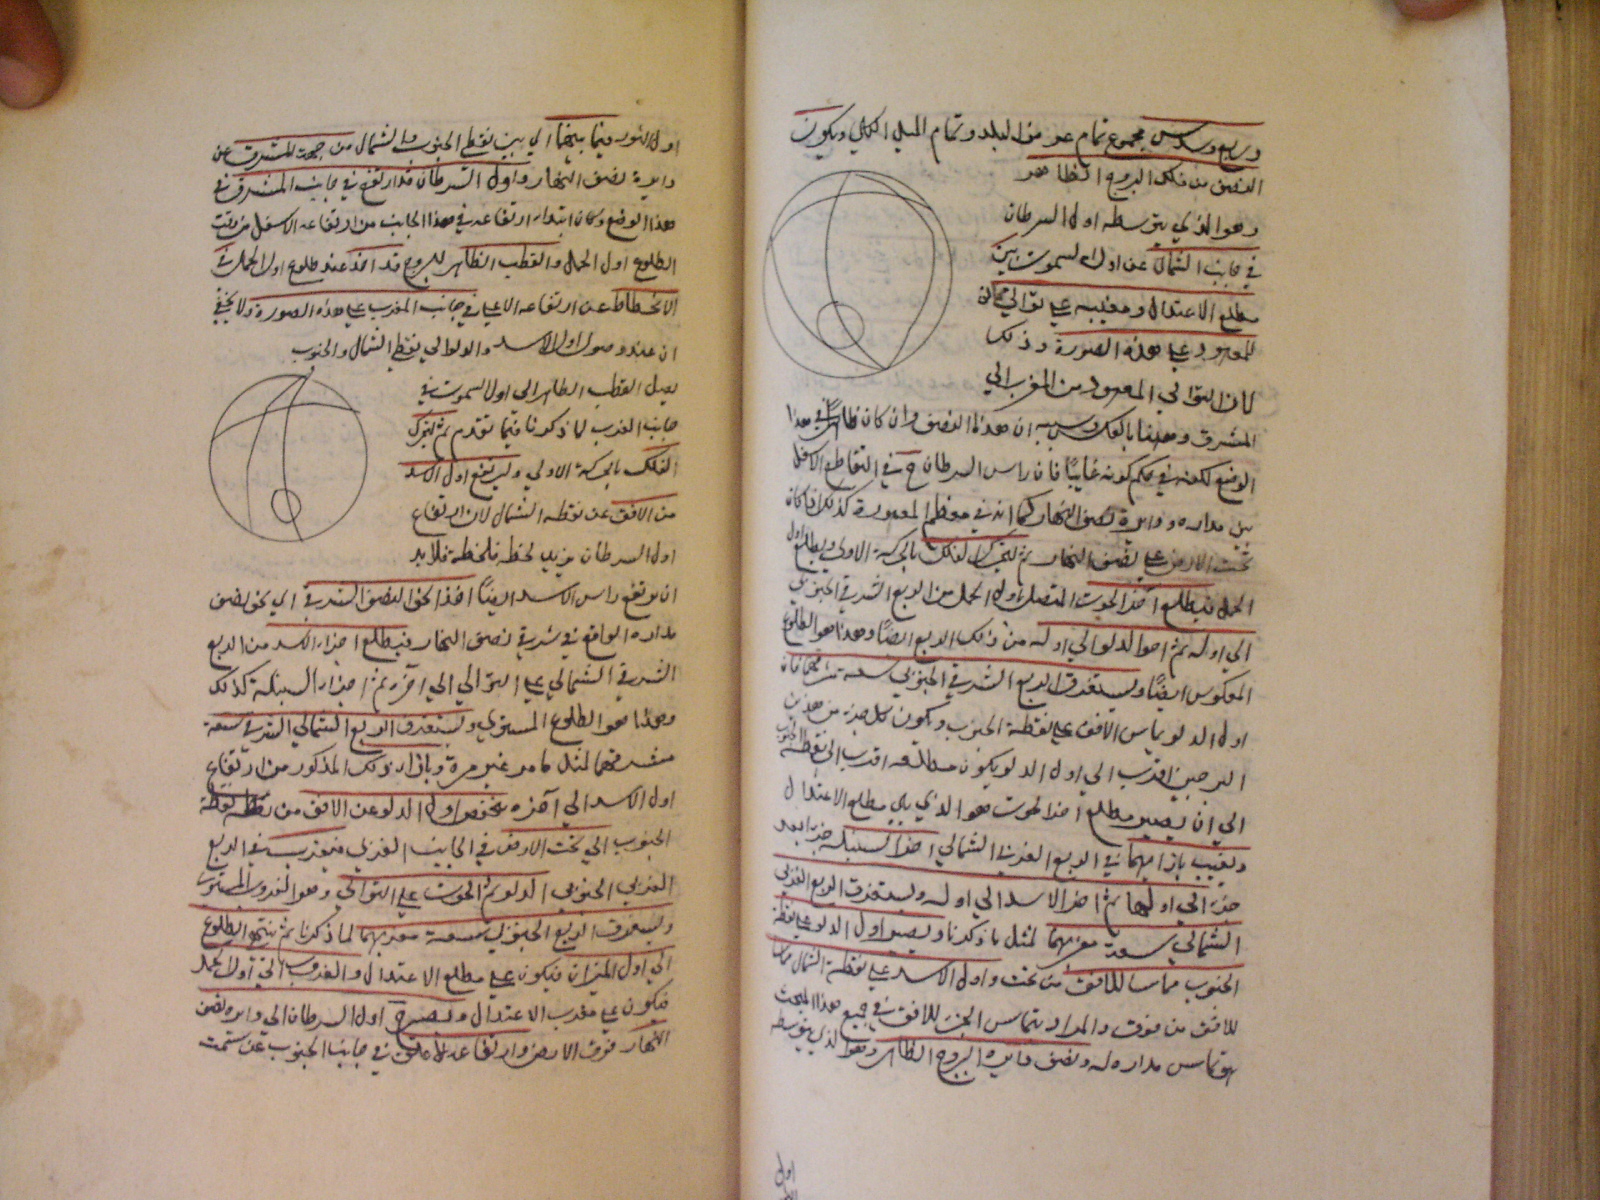 وربع وسدس مجموع تمام عرض البلد وتمام الميل الكلي ويكون
النصف من فلك البروج الظاهر
وهو الذي يتوسطه اول السرطان
في جانب الشمال عن اول السموت بين
مطلع الاعتدال ومغيبه على توالي
المعهود على هذه الصورة وذلك
لان التوالي المعهود من المغرب الي
المشرق وههنا بالعكس وسببه ان هذا النصف وان كان ظاهرا في هذا
الوضع لكنه في حكم كونه غايبا فان راس السرطان ح في التقاطع الاسفل
بين مداره ودايرة نصف النهار كما انه في معظم المعمورة كذلك اذا كان
تحت الارض على نصف النهار ثم يتحرك الفلك بالحركة الاولى ويطلع اول
الحمل فيطلع اخر الحوت المتصل باول الحمل من الربع الشرقي الجنوبي
الي اوله ثم اخر الدلو الي اوله من ذلك الربع ايضا وهذا هو الطلوع
المعكوس ايضا ويستغرق الربع الشرقي الجنوبي سعة مشرقهما فان
اول الدلو يماس الافق على نقطة الجنوب ويكون كل جزء من هذين
البرجين اقرب الي اول الدلو يكون مطلعه اقرب الى نقطة الجنوب
الي ان يصير مطلع اخر الحوت هو الذي يلي مطلع الاعتدال
ويغيب بازايهما في الربع الغربي الشمالي اخر السنبلة جزء بعد
جزء الي اولها ثم اخر الاسد الي اوله ويستغرق الربع الغربي
الشمالي سعة مغربهما لمثل ما ذكرنا ويصير اول الدلو على نقطة
الجنوب مماسا للافق من تحت واول الاسد على نقطة الشمال مماسا
للافق من فوق والمراد بتماس الجزء للافق في جميع هذا المبحث
هو تماس مداره له ونصف دايرة البروج الظاهر وهو الذي يتوسطه
اول
اول الثور فيما بينهما اي بين نقطتي الجنوب والشمال من جهة المشرق عن
دايرة نصف النهار واول السرطان قد ارتفع في جانب المشرق في
هذا الوضع وكان ابتداء ارتفاعه في هذا الجانب من ارتفاعه الاسفل من وقت
الطلوع اول الحمل والقطب الظاهر للبروج قد اخذ عند طلوع اول الحمل في
الانحطاط عن ارتفاعه الاعلى في جانب المغرب على هذه الصورة ولا يخفي
ان عند وصول اول الاسد والدلو الي نقطتي الشمال والجنوب
يصل القطب الظاهر الى اول السموت في
جانب الغرب لما ذكرنا فيما تقدم ثم يتحرك
الفلك بالحركة الاولي ويرتفع اول الاسد
من الافق عن نقطة الشمال لان ارتفاع
اول السرطان يزيد لحظة فلحظة فلا بد
ان يرتفع راس الاسد ايضا اخذا نحو النصف الشرقي اي نحو نصف
مداره الواقع في شرقي نصف النهار فيطلع اجزاء الاسد من الربع
الشرقي الشمالي على التوالي الي اخره ثم اجزاء السنبلة كذلك
وهذا هو الطلوع المستوي ويستغرق الربع الشمالي الشرقي سعة
مشرقهما لمثل ما مر غير مرة وبازاء ذلك المذكور من ارتفاع
اول الاسد الي اخره ينخفض اول الدلو عن الافق من نقطة
الجنوب الي تحت الارض في الجانب الغربي فيغرب في الربع
الغربي الجنوبي الدلو ثم الحوت على التوالي وهو الغروب المستوي
ويستغرق الربع الجنوبي سعة مغربهما لما ذكرنا ثم ينتهي الطلوع
الي اول الميزان فيكون على مطلع الاعتدال والغروب الي اول الحمل
فيكون على مغرب الاعتدال ويصير ح اول السرطان الي دايرة نصف
النهار فوق الارض وارتفاعه الاعلى في جانب الجنوب عن سمت